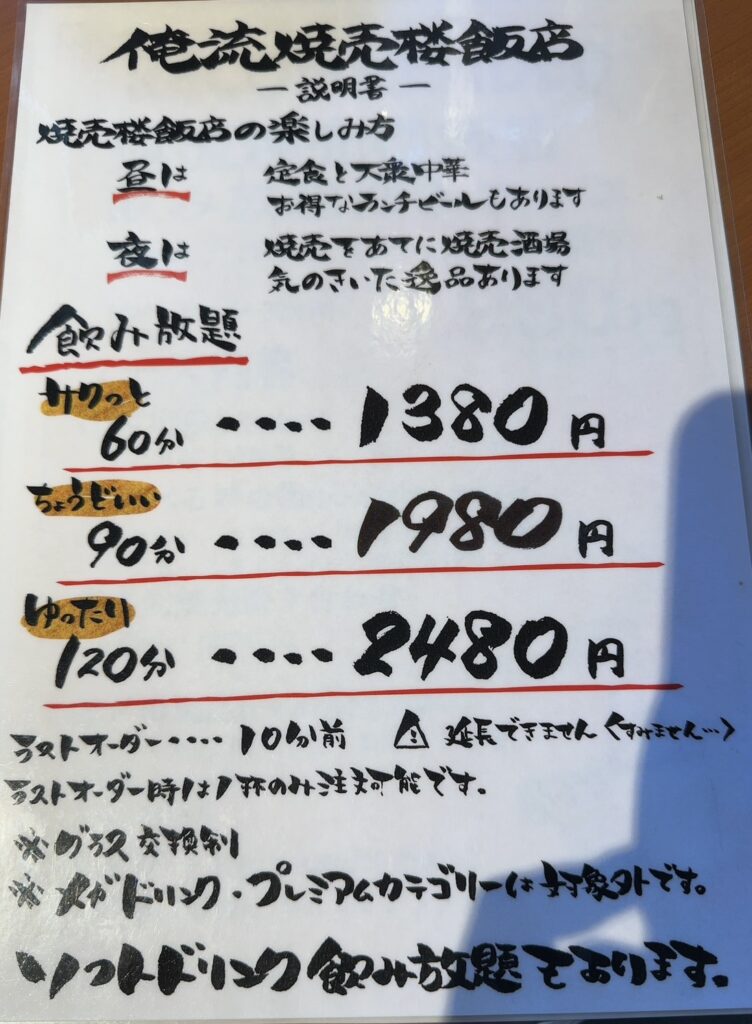 俺流焼売楼飯店
— 説明書 —
焼売楼飯店の楽しみ方
昼は 定食と大衆中華
お得なランチビールもあります
夜は 焼売をあてに焼売酒場
気のきいた逸品あります
飲み放題
サクっと
60分 ・・・・ 1380円
ちょうどいい
90分 ・・・・ 1980円
ゆったり
120分 ・・・・ 2480円
ラストオーダー・・・・10分前 ⚠ 延長できません〈すみません…〉
ラストオーダー時は1杯のみ注文可能です。
※グラス交換制
※メガドリンク・プレミアムカテゴリーは対象外です。
ソフトドリンク飲み放題もあります。